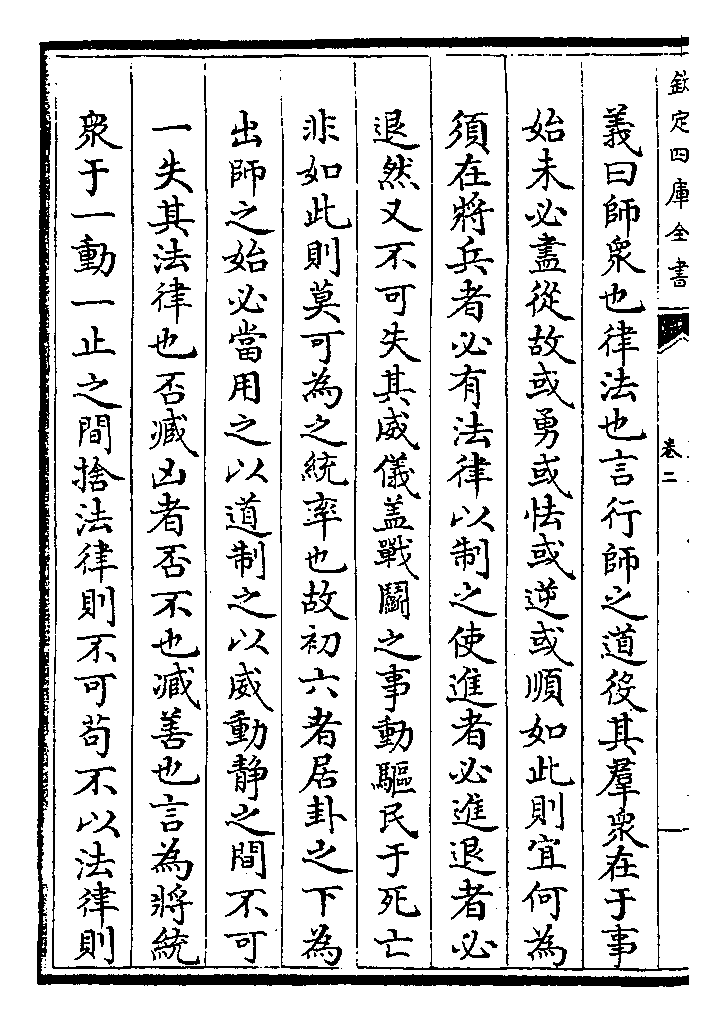 欽定四庫全書
卷二
義曰師衆也律法也言行師之道役其羣衆在于事
始未必盡從故或勇或怯或逆或順如此則宜何為
須在將兵者必有法律以制之使進者必進退者必
退然又不可失其威儀盖戰鬬之事動驅民于死亡
非如此則莫可為之統率也故初六者居卦之下為
出師之始必當用之以道制之以威動靜之間不可
一失其法律也否臧凶者否不也臧善也言為將統
衆于一動一止之間捨法律則不可苟不以法律則